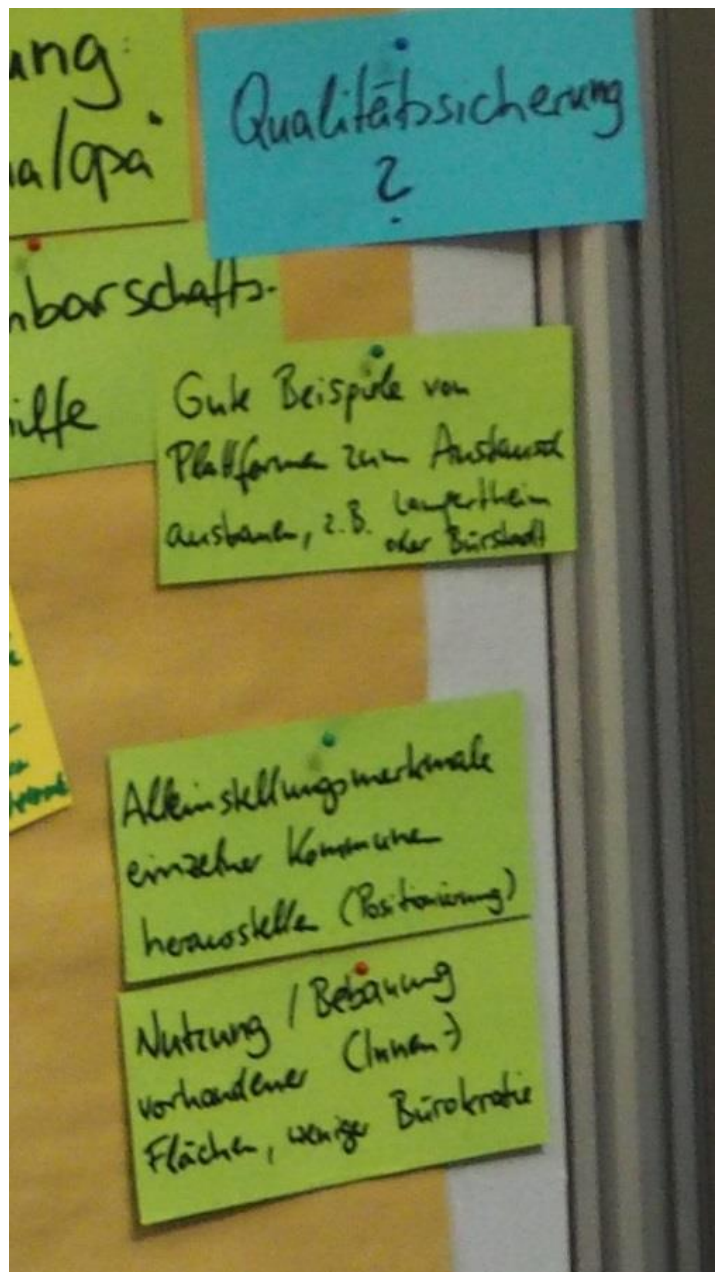 ung:
a/opa"
Qualitätssicherung
?
nbarschafts-
ilfe
Gute Beispiele von
Plattformen zum Austausch
ausbauen, z.B. Lampertheim
oder Bürstadt
Alleinstellungsmerkmale
einzelner Kommunen
herausstellen (Positionierung)
Nutzung / Bebauung
vorhandener (Innen-)
Flächen, weniger Bürokratie